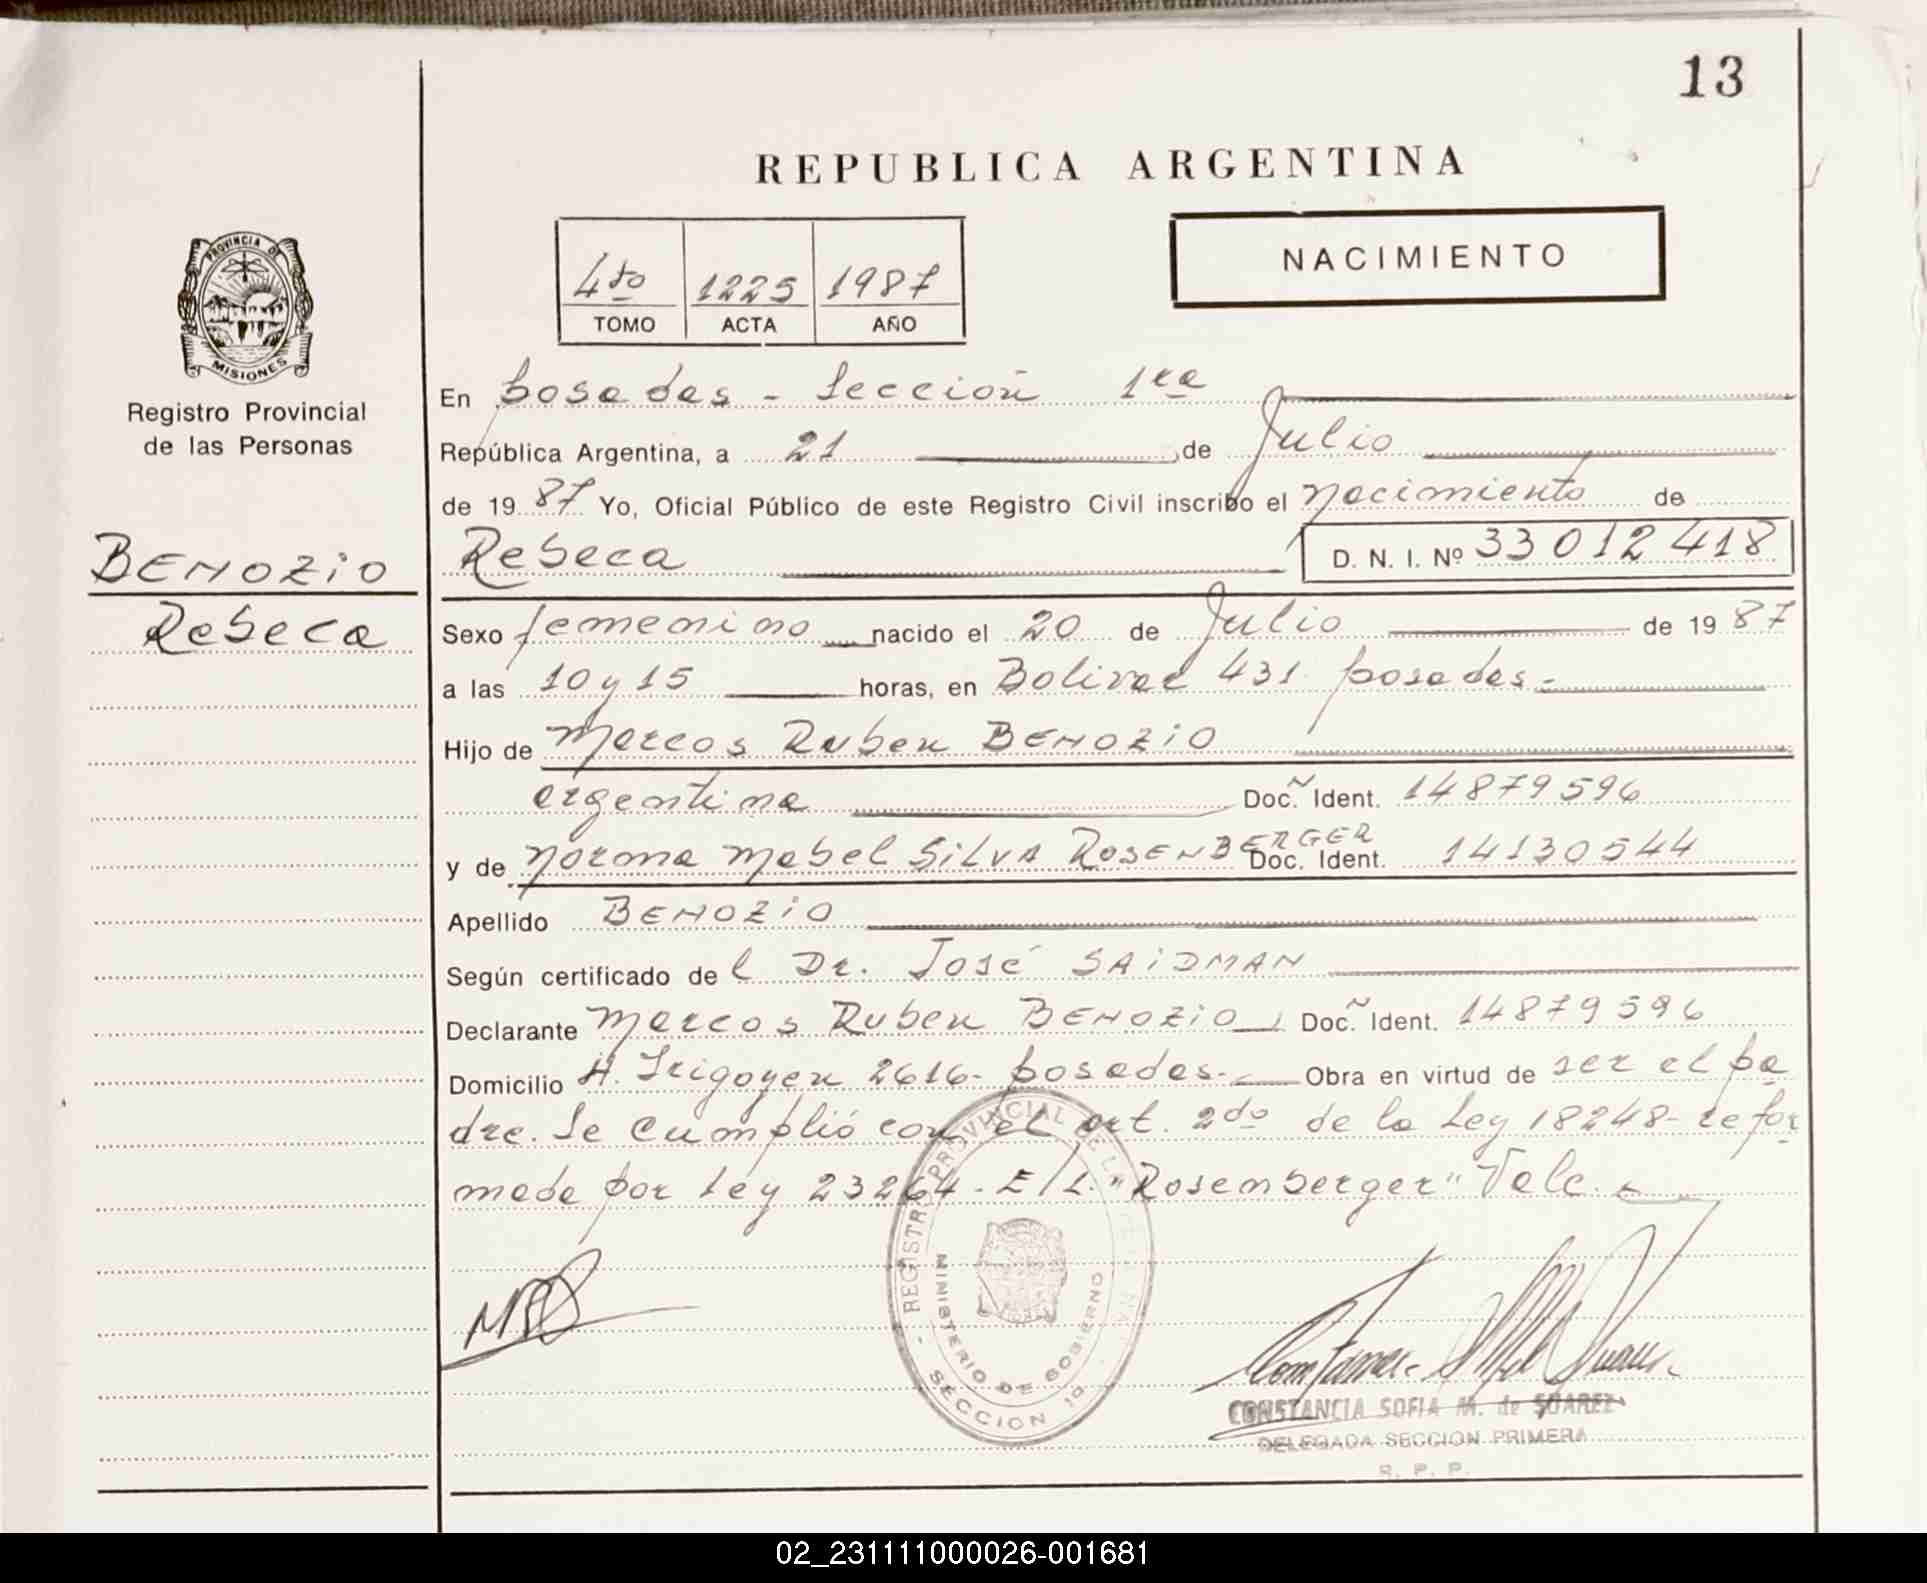 13
REPUBLICA ARGENTINA
4to 1225 1987
TOMO ACTA AÑO
NACIMIENTO
PROVINCIA DE
MISIONES
Registro Provincial
de las Personas
BENOZIO
Rebeca
En Posadas - Sección 1ra
República Argentina, a 21 de Julio
de 1987 Yo, Oficial Público de este Registro Civil inscribo el nacimiento de
Rebeca D. N. I. Nº 33 012 418
Sexo femenino nacido el 20 de Julio de 1987
a las 10 y 15 horas, en Bolivar 431. Posadas.-
Hijo de Marcos Ruben BENOZIO
argentina Doc. Ident. 14879596
y de Norma Mabel SILVA ROSENBERGER Doc. Ident. 14130544
Apellido BENOZIO
Según certificado del Dr. José SAIDMAN
Declarante Marcos Ruben BENOZIO Doc. Ident. 14879596
Domicilio H. Irigoyen 2616- Posadas.- Obra en virtud de ser el pa
dre. Se cumplió con el art. 2do de la Ley 18248- refor
mada por Ley 23264. E/L. "Rosenberger" Vale.
REGISTRO PROVINCIAL DE LA
MINISTERIO DE GOBIERNO
SECCION 1a
CONSTANCIA SOFIA M. de SUAREZ
DELEGADA SECCION PRIMERA
R. P. P.
02_231111000026-001681